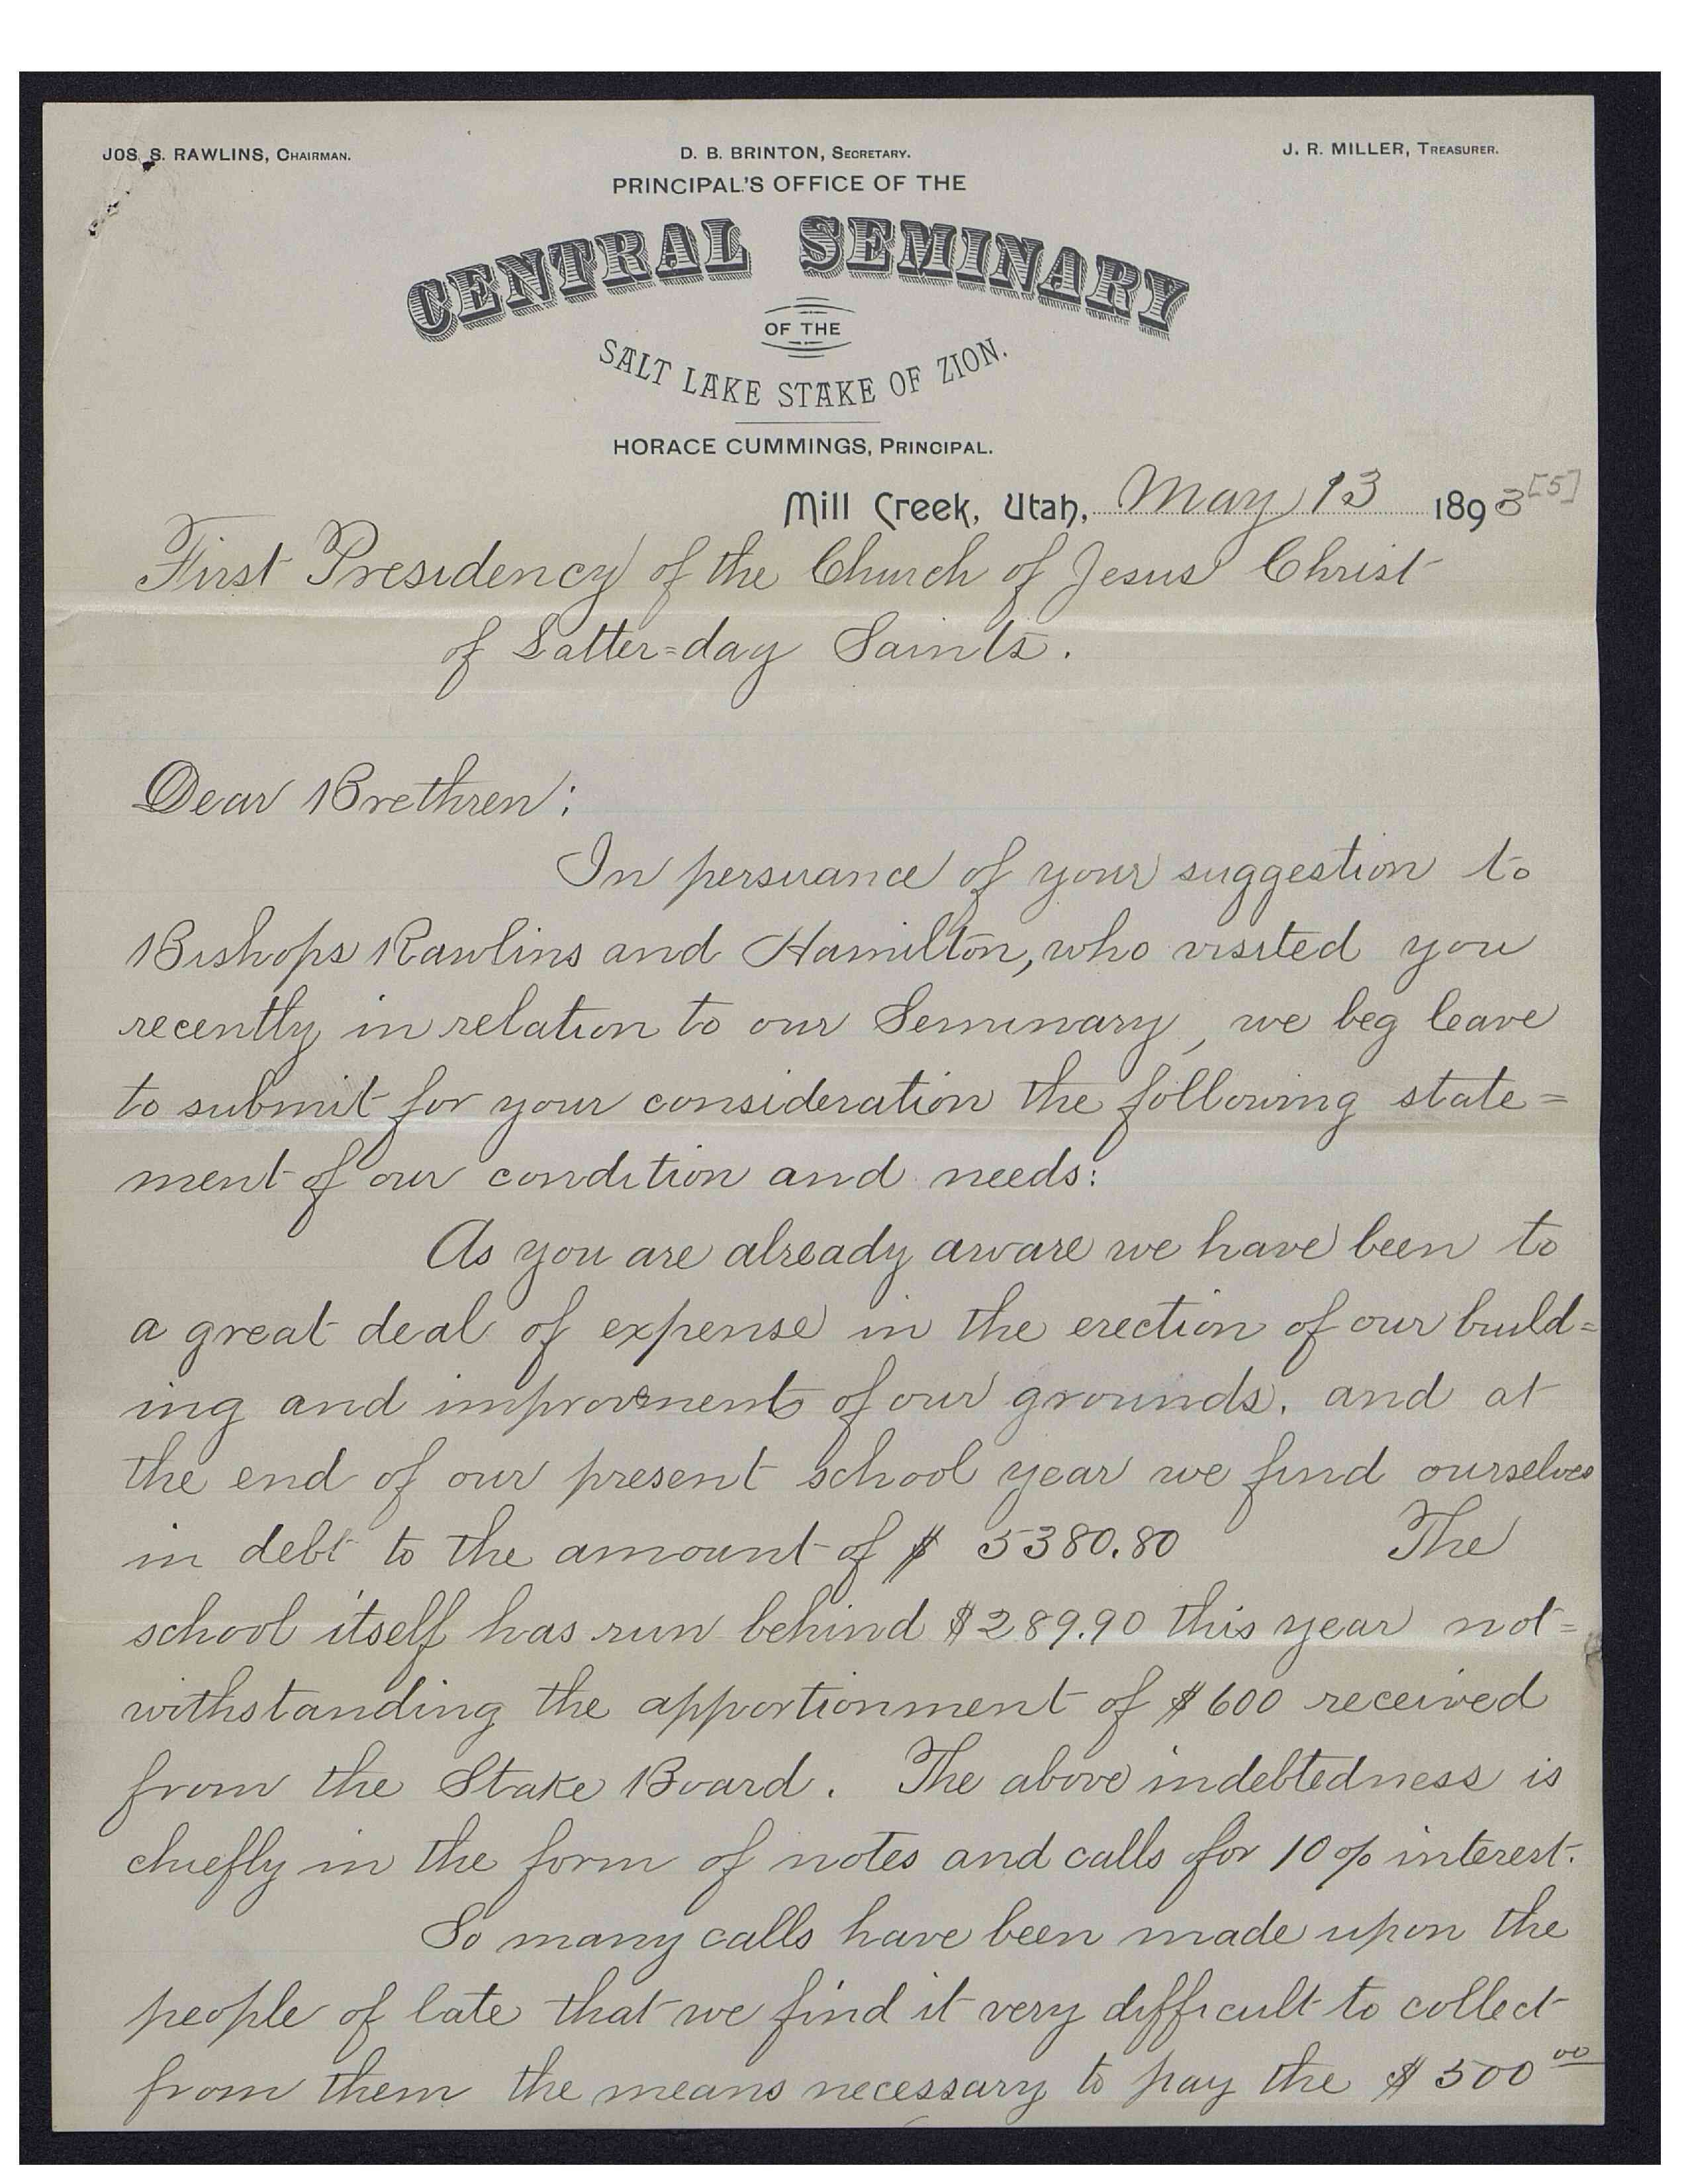 JOS. S. RAWLINS, CHAIRMAN.
D. B. BRINTON, SECRETARY.
J. R. MILLER, TREASURER.
PRINCIPAL'S OFFICE OF THE
CENTRAL SEMINARY
OF THE
SALT LAKE STAKE OF ZION.
HORACE CUMMINGS, PRINCIPAL.
Mill Creek, Utah, May 13 1893 [5]
First Presidency of the Church of Jesus Christ
of Latter=day Saints.
Dear Brethren:
In persuance of your suggestion to
Bishops Rawlins and Hamilton, who visited you
recently in relation to our Seminary, we beg leave
to submit for your consideration the following state=
ment of our condition and needs:
As you are already aware we have been to
a great deal of expense in the erection of our build=
ing and improvements of our grounds, and at
the end of our present school year we find ourselves
in debt to the amount of $ 5380.80 The
school itself has run behind $289.90 this year not=
withstanding the apportionment of $600 received
from the Stake Board. The above indebtedness is
chiefly in the form of notes and calls for 10% interest.
So many calls have been made upon the
people of late that we find it very difficult to collect
from them the means necessary to pay the $ 500 00